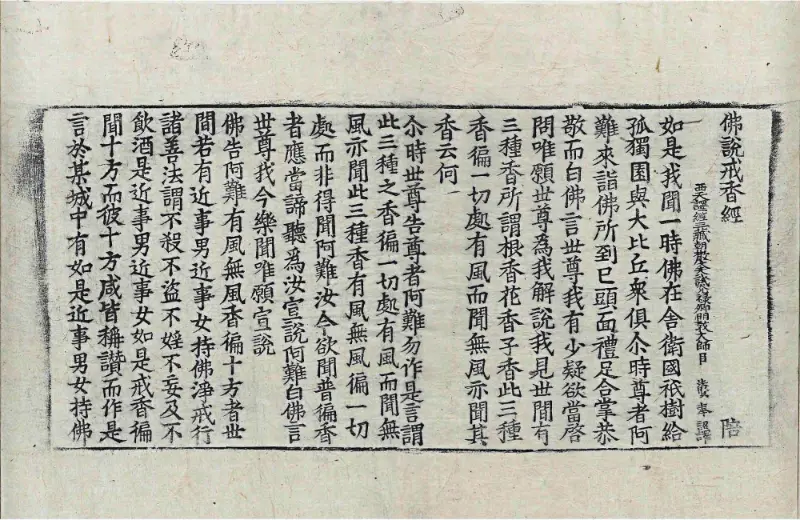 佛說戒香經 陪
西天譯經三藏朝散大夫試光祿卿明教大師臣 法賢 奉 詔譯
如是我聞一時佛在舍衛國祇樹給
孤獨園與大比丘衆俱尒時尊者阿
難來詣佛所到已頭面禮足合掌恭
敬而白佛言世尊我有少疑欲當啓
問唯願世尊為我解說我見世間有
三種香所謂根香花香子香此三種
香徧一切處有風而聞無風亦聞其
香云何
尒時世尊告尊者阿難勿作是言謂
此三種之香徧一切處有風而聞無
風亦聞此三種香有風無風徧一切
處而非得聞阿難汝今欲聞普徧香
者應當諦聽爲汝宣說阿難白佛言
世尊我今樂聞唯願宣說
佛告阿難有風無風香徧十方者世
間若有近事男近事女持佛淨戒行
諸善法謂不殺不盜不婬不妄及不
飲酒是近事男近事女如是戒香徧
聞十方而彼十方咸皆稱讚而作是
言於某城中有如是近事男女持佛